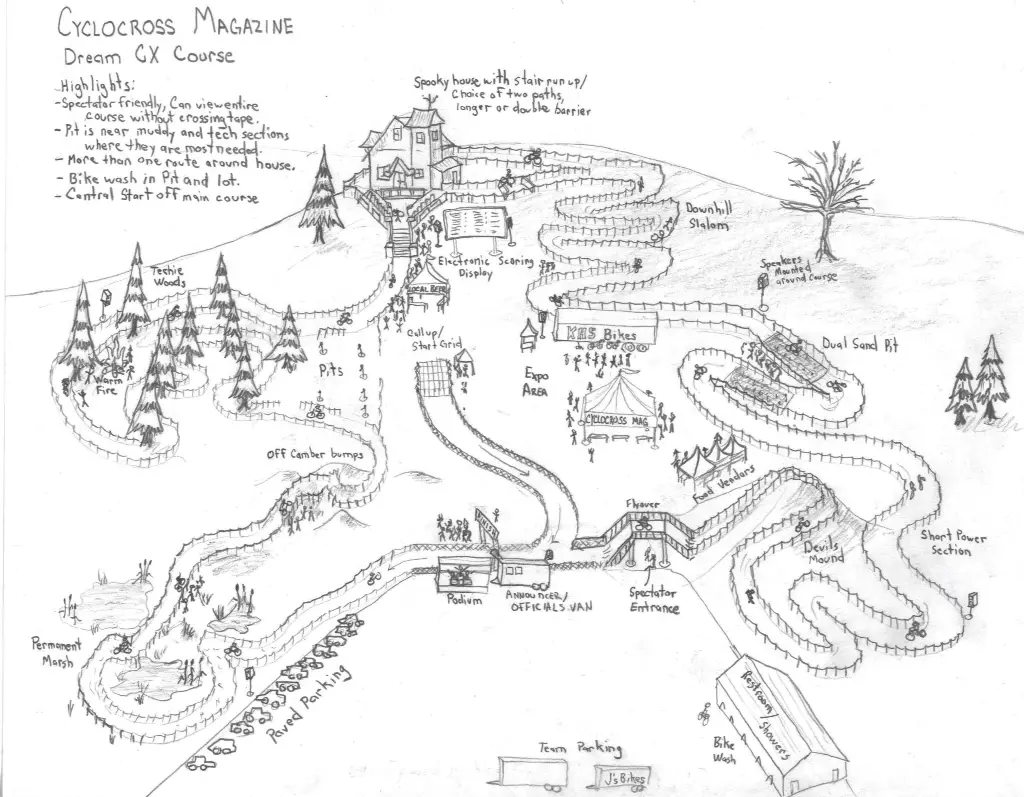 CYCLOCROSS MAGAZINE
Dream CX Course
Highlights:
-Spectator friendly, Can view entire
course without crossing tape.
-Pit is near muddy and tech sections
where they are most needed.
-More than one route around house.
-Bike wash in Pit and lot.
-Central Start off main course
Spooky house with stair run up/
Choice of two paths,
longer or double barrier
Downhill
Slalom
Electronic Scoring
Display
Techie
Woods
Speakers
Mounted
around course
LOCAL BEER
Call up/
Start Grid
KHS Bikes
Dual Sand Pit
Pits
Warm
Fire
EXPO
AREA
CYCLOCROSS MAG
Off Camber bumps
Food Vendors
Flyover
FINISH
Devils
Mound
Short Power
Section
Podium
ANNOUNCER/
OFFICIALS VAN
Spectator
Entrance
Permanent
Marsh
Paved Parking
Restroom/
Showers
Bike
Wash
Team Parking
J's Bikes